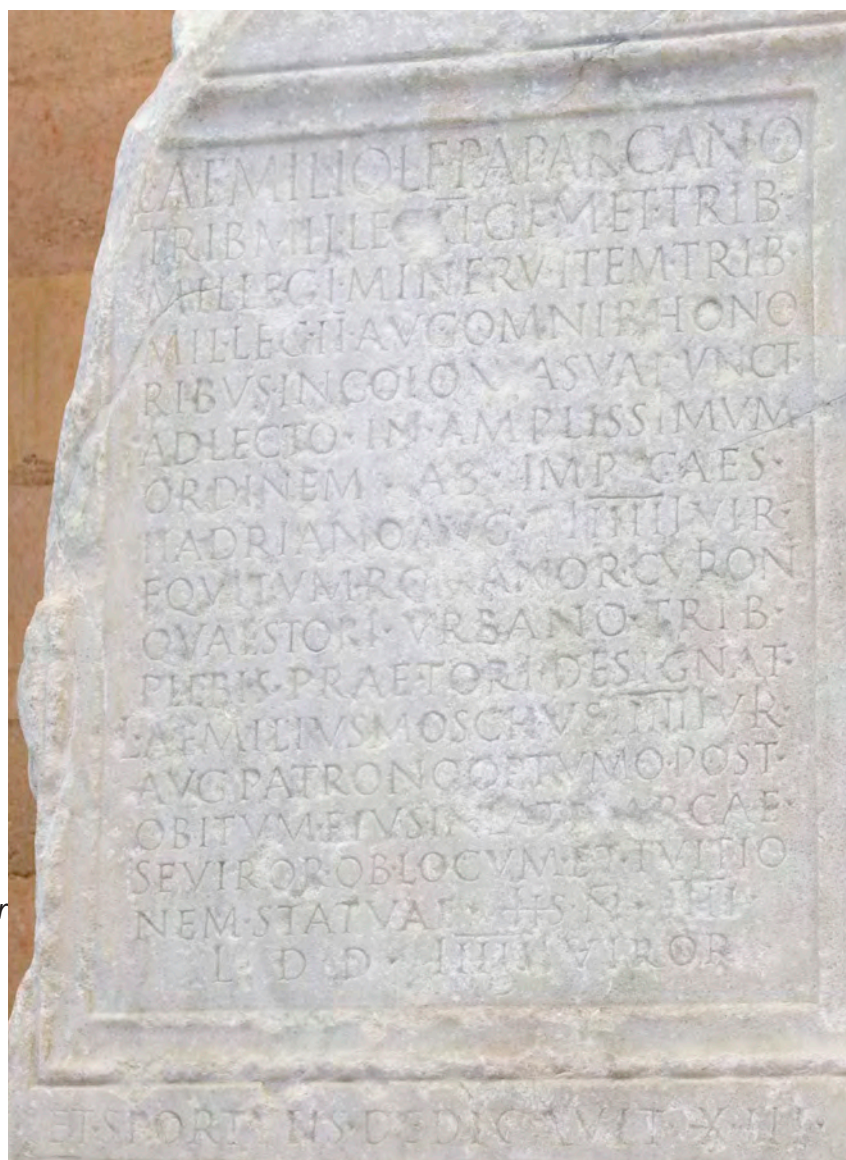 L·AEMILIO·L·F·PAP·ARCANO
TRIB·MIL·LEG·XI·GEM·ET·TRIB·
MIL·LEG·I·MINERV·ITEM·TRIB·
MIL·LEG·II·AVG·OMNIB·HONO
RIBVS·IN·COLONIA·SVA·FVNCT
ADLECTO·IN·AMPLISSIMVM
ORDINEM·AB·IMP·CAES·
HADRIANO·AVG·IIIIII·VIR·
EQVITVM·ROMANOR·CVRION
QVAESTORI·VRBANO·TRIB·
PLEBIS·PRAETORI·DESIGNAT·
L·AEMILIVS·MOSCHVS·IIIIII·VIR·
AVG·PATRONO·OPTVMO·POST·
OBITVM·EIVS·INLATIS·ARCAE·
SEVIROR·OB·LOCVM·ET·TVITIO
NEM·STATVAE·HS·N·IIII·
L·D·D·IIIIII·VIROR
ET·SPORTVLIS·DEDICAVIT·